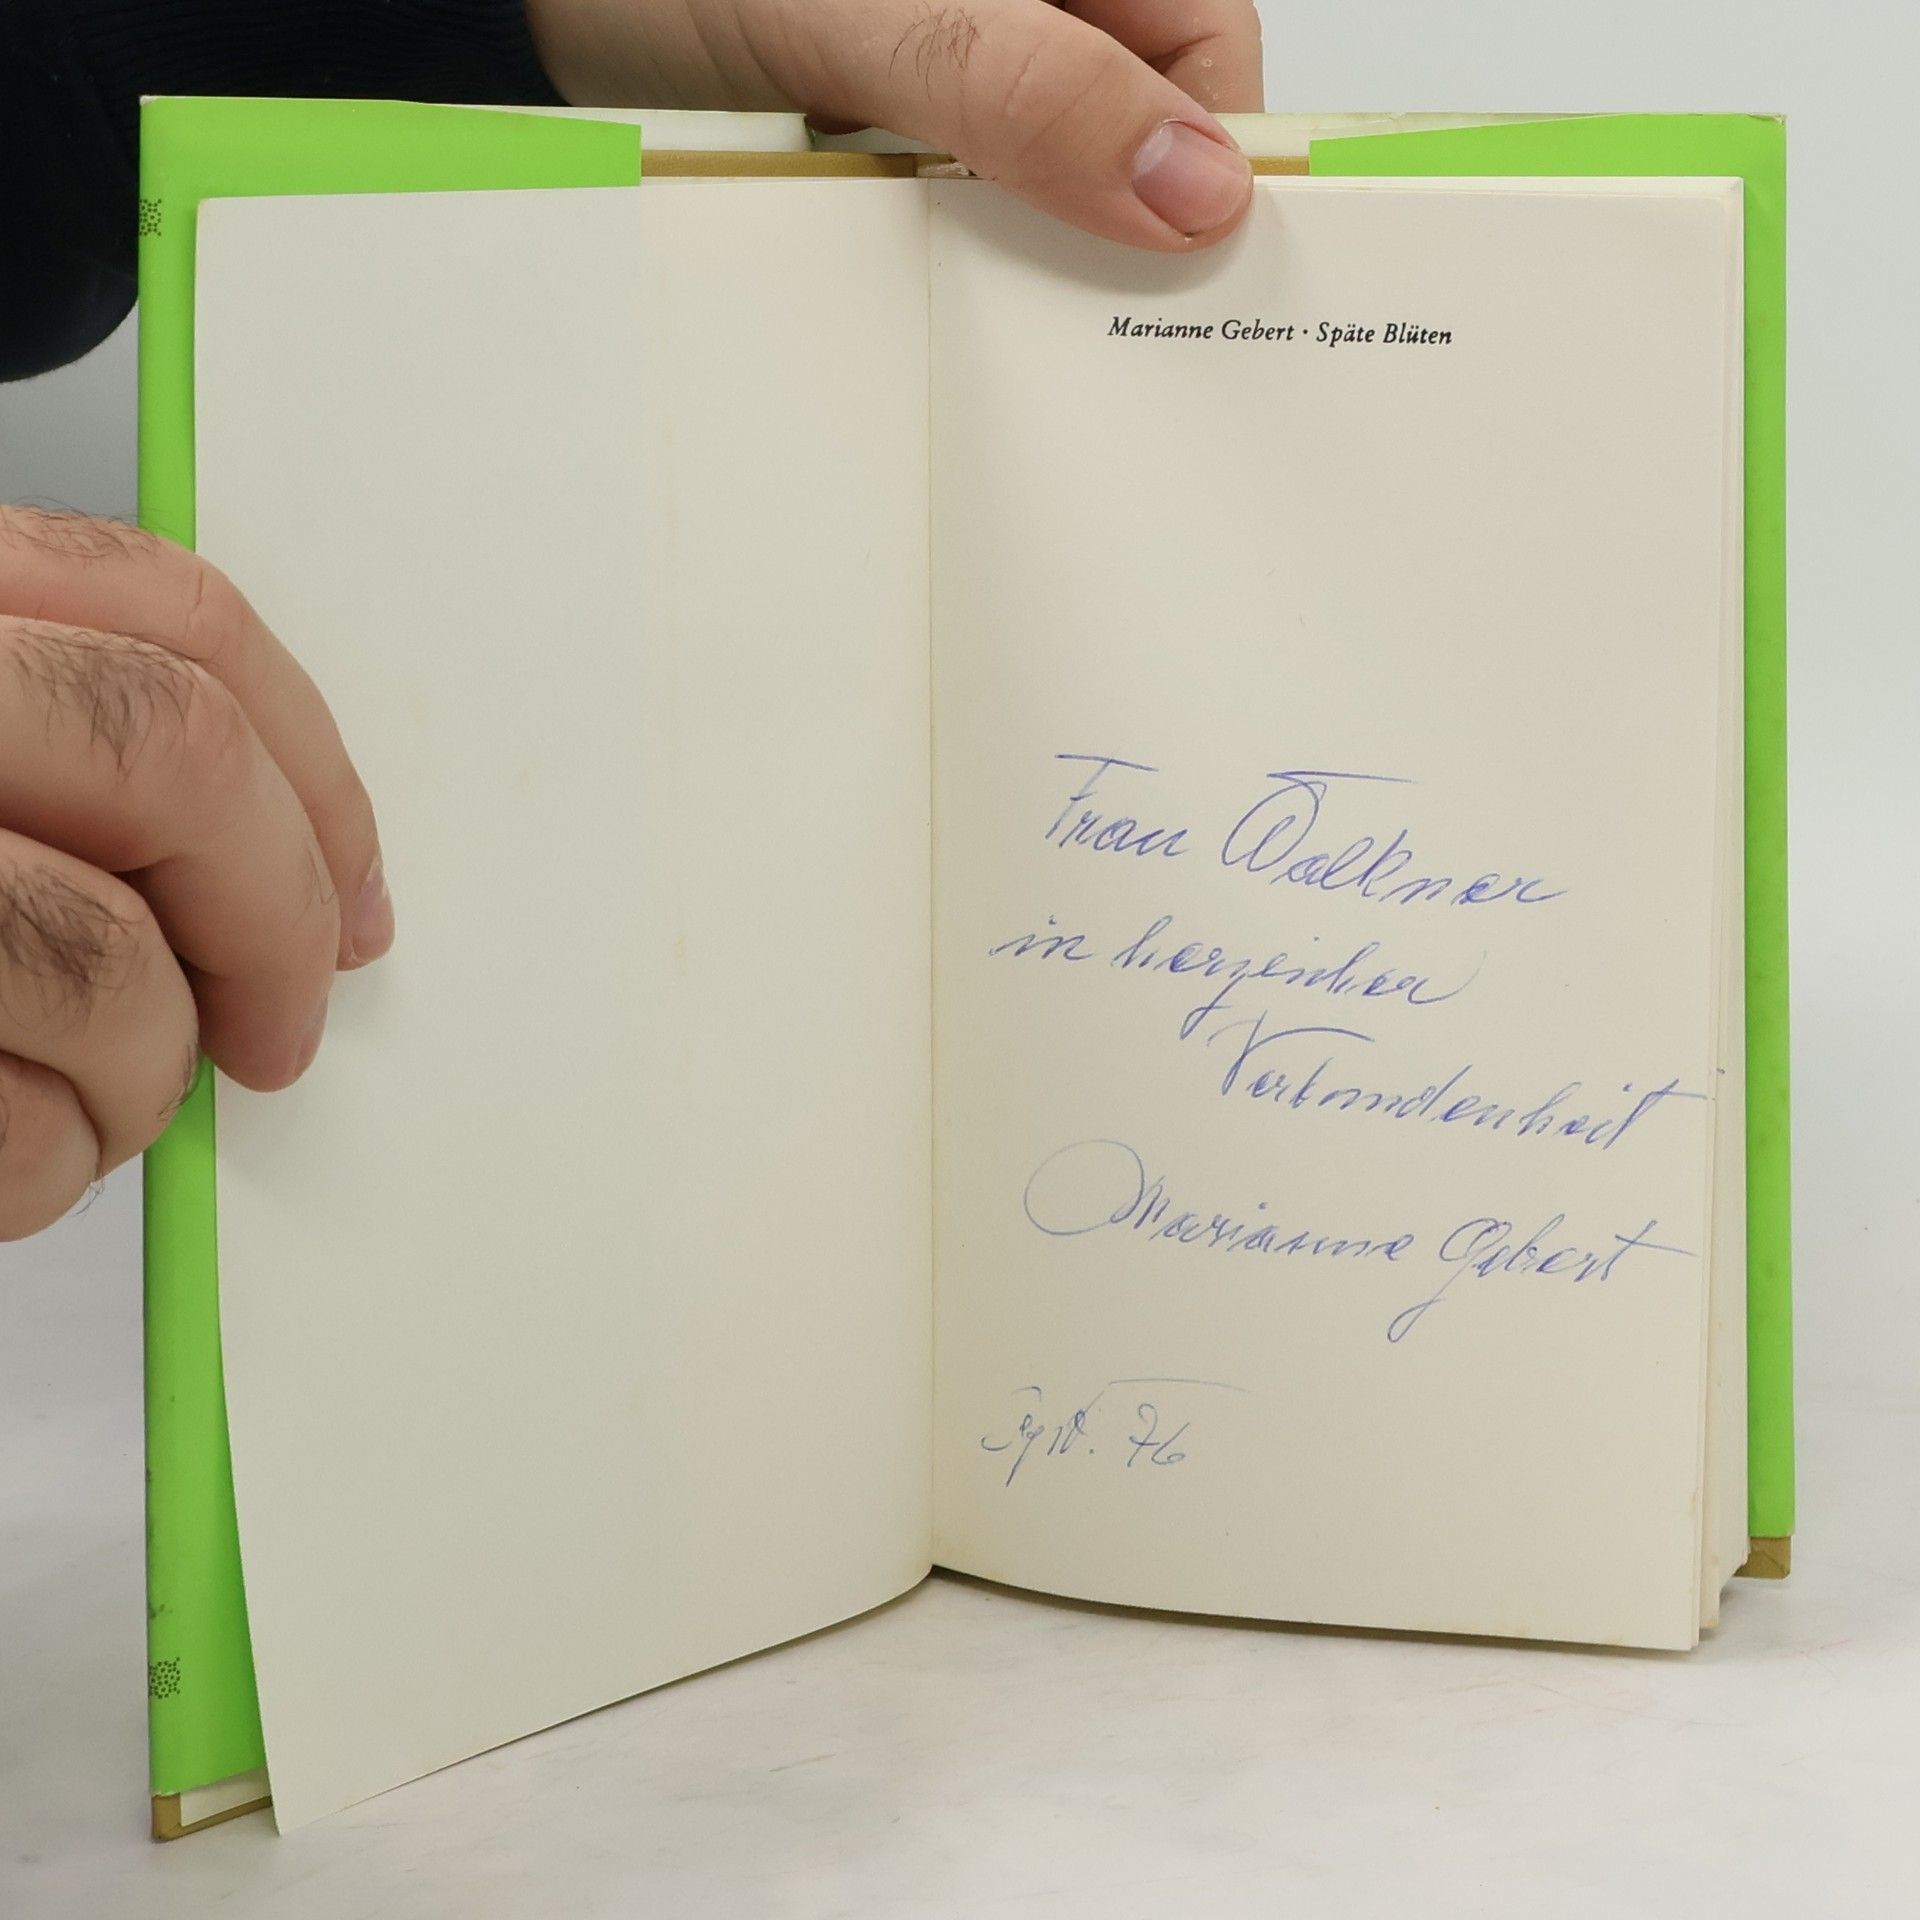 Marianne Gebert · Späte Blüten
Frau Walkner
in herzlicher
Verbundenheit
Marianne Gebert
Sept. 76